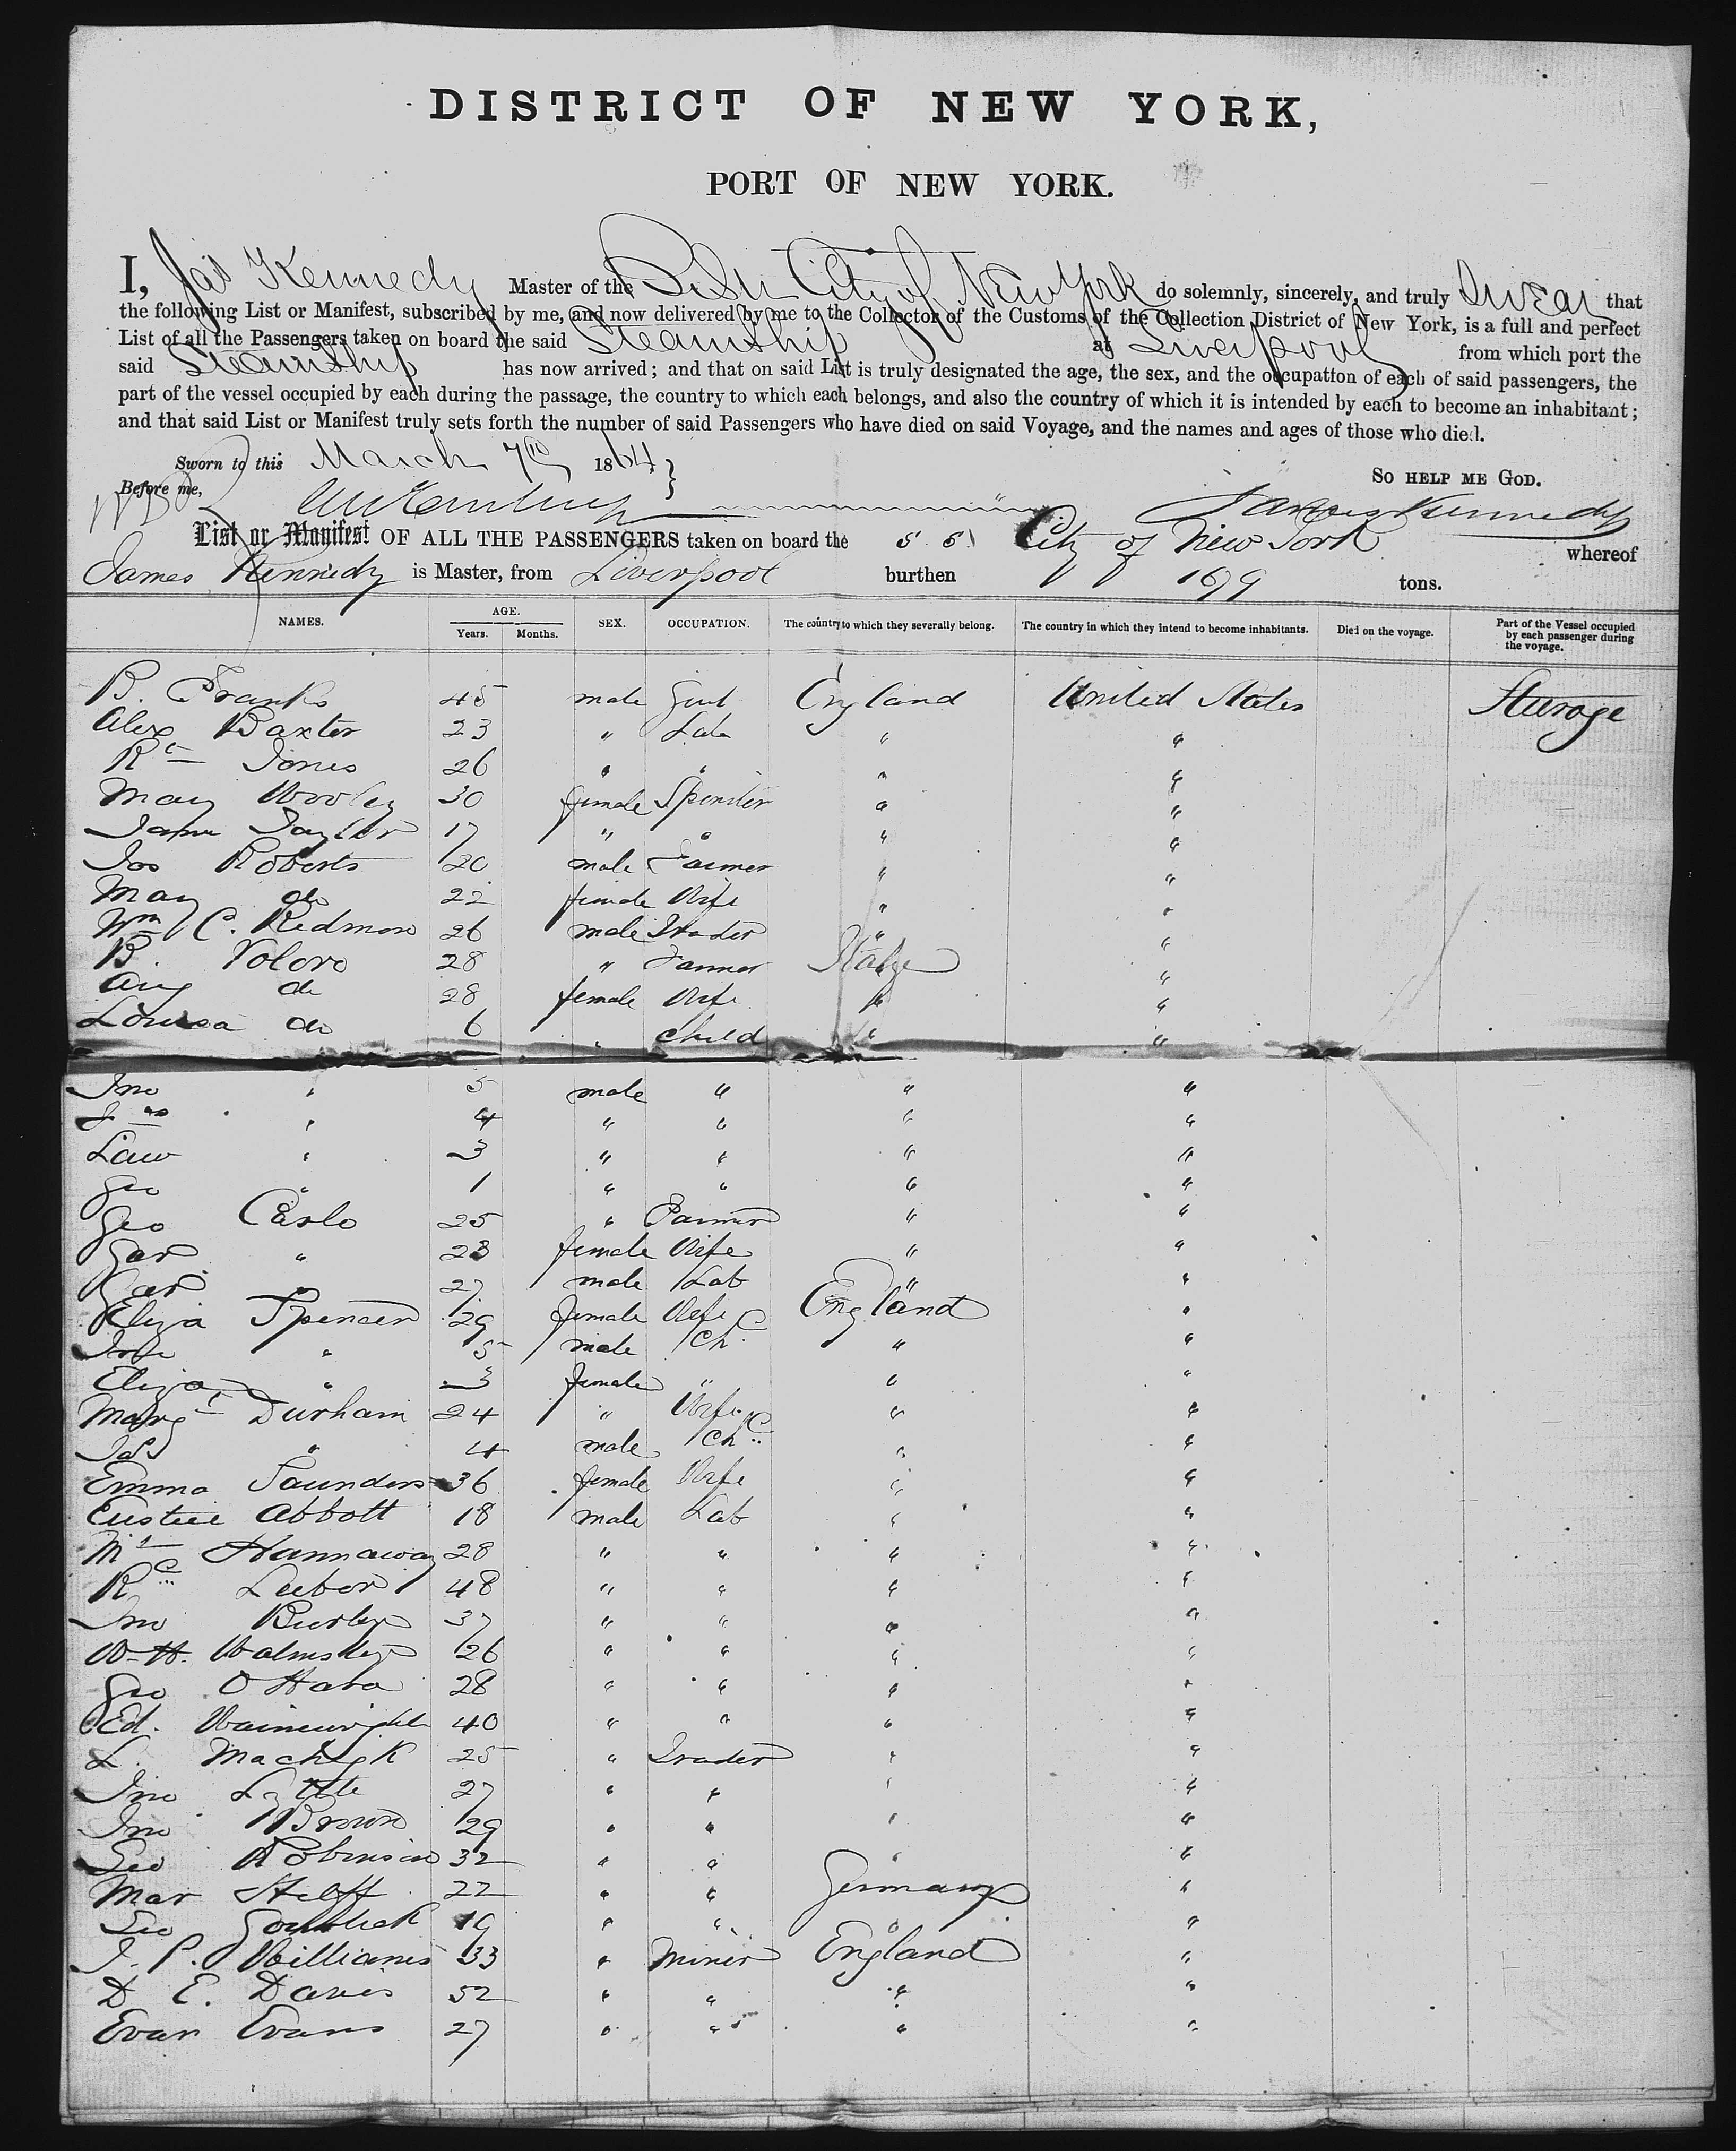 DISTRICT OF NEW YORK,
PORT OF NEW YORK.
I, Jas Kennedy Master of the S. Str City of New York do solemnly, sincerely, and truly Swear that
the following List or Manifest, subscribed by me, and now delivered by me to the Collector of the Customs of the Collection District of New York, is a full and perfect
List of all the Passengers taken on board the said Steamship at Liverpool from which port the
said Steamship has now arrived; and that on said List is truly designated the age, the sex, and the occupation of each of said passengers, the
part of the vessel occupied by each during the passage, the country to which each belongs, and also the country of which it is intended by each to become an inhabitant;
and that said List or Manifest truly sets forth the number of said Passengers who have died on said Voyage, and the names and ages of those who died.
Sworn to this March 7th 1864 } SO HELP ME GOD.
Before me, James Kennedy
List or Manifest OF ALL THE PASSENGERS taken on board the S. S. City of New York whereof
James Kennedy is Master, from Liverpool burthen 1679 tons.
NAMES. AGE. Years. Months. SEX. OCCUPATION. The country to which they severally belong. The country in which they intend to become inhabitants. Died on the voyage. Part of the Vessel occupied by each passenger during the voyage.
B. Franks 45 male Gent England United States Steerage
Alex Baxter 23 " Lab " "
Rt Jones 26 " " " "
Mary Wooley 30 female Spinster " "
Jane Taylor 17 " " " "
Jos Roberts 20 male Farmer " "
Mary do 22 female Wife " "
Wm C. Redmon 26 male Trader " "
B. Voloro 28 " Farmer Italy "
Aug do 28 female Wife " "
Louisa do 6 " child " "
Jno " 5 male " " "
Jas " 4 " " " "
Law " 3 " " " "
Geo " 1 " " " "
Geo Carlo 25 " Farmer " "
Gar " 23 female Wife " "
Car " 27 male Lab " "
Eliza Spencer 29 female Wife England "
" 5 male Ch " "
Eliza " 3 female " " "
Margt Durham 24 " Wife " "
Jas " 4 male Ch " "
Emma Saunders 36 female Wife " "
Eustice Abbott 18 male Lab " "
Mt Hannaway 28 " " " "
R Lubor 48 " " " "
Jno Burley 37 " " " "
W. H. Walmsley 26 " " " "
Geo O Hara 28 " " " "
Ed. Wainewright 40 " " " "
L. Machigk 25 " Trader " "
Jno Lyttle 27 " " " "
Jno Brown 29 " " " "
Geo Robinson 32 " " " "
Mar Steff 22 " " Germany "
Geo 19 " " " "
J. P. Williams 33 " Miner England "
D E. Davis 52 " " " "
Evan Evans 27 " " " "